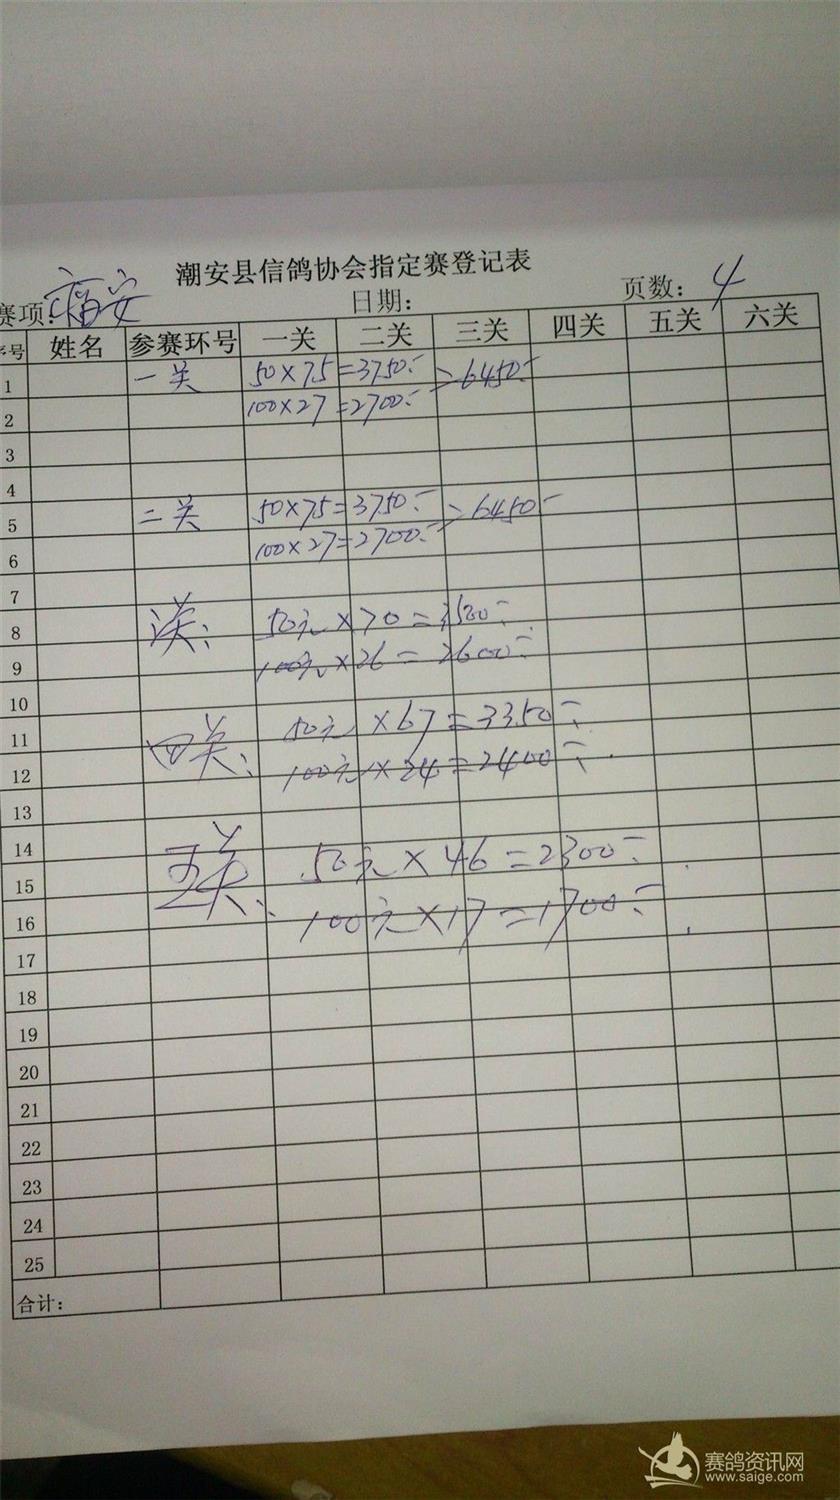 潮安县信鸽协会指定赛登记表
赛项:福安 日期: 页数: 4
序号 姓名 参赛环号 一关 二关 三关 四关 五关 六关
1 一关 50×75=3750 >6450
2 100×27=2700
3
4
5 二关 50×75=3750 >6450
6 100×27=2700
7
8 关: 50元×70=3500
9 100元×26=2600
10
11 四关: 50元×67=3350
12 100元×24=2400
13
14 五关: 50元×46=2300
15
16 100元×17=1700
17
18
19
20
21
22
23
24
25
合计:
赛鸽资讯网
www.saige.com